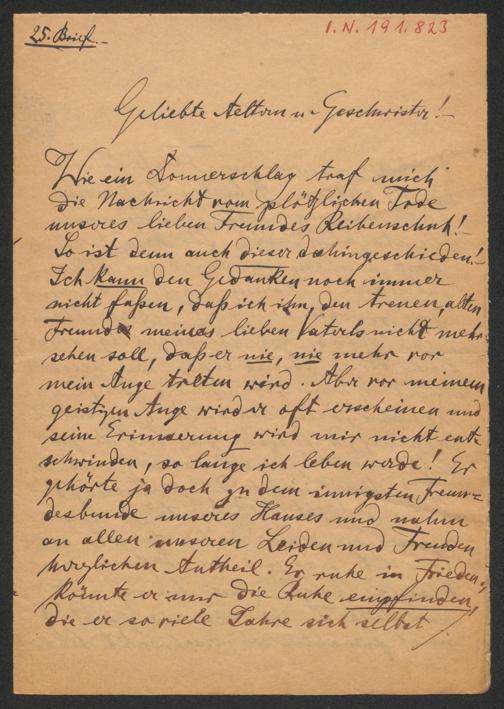 25. Brief.-
I. N. 191.823
Geliebte Aeltern u. Geschwister!-
Wie ein Donnerschlag traf mich
die Nachricht vom plötzlichen Tode
unseres lieben Freundes Reibenschuh!-
So ist denn auch dieser dahingeschieden!-
Ich kann den Gedanken noch immer
nicht faßen, daß ich ihn, den treuen, alten
Freund meines lieben Vaters nicht mehr
sehen soll, daß er nie, nie mehr vor
mein Auge treten wird. Aber vor meinem
geistigen Auge wird er oft erscheinen und
seine Erinnerung wird mir nicht ent-
schwinden, so lange ich leben werde! Er
gehörte ja doch zu dem innigsten Freun-
desbunde unseres Hauses und nahm
an allen unseren Leiden und Freuden
herzlichen Antheil. Er ruhe in Frieden,
könnte er nur die Ruhe empfinden,
die er so viele Jahre sich selbst